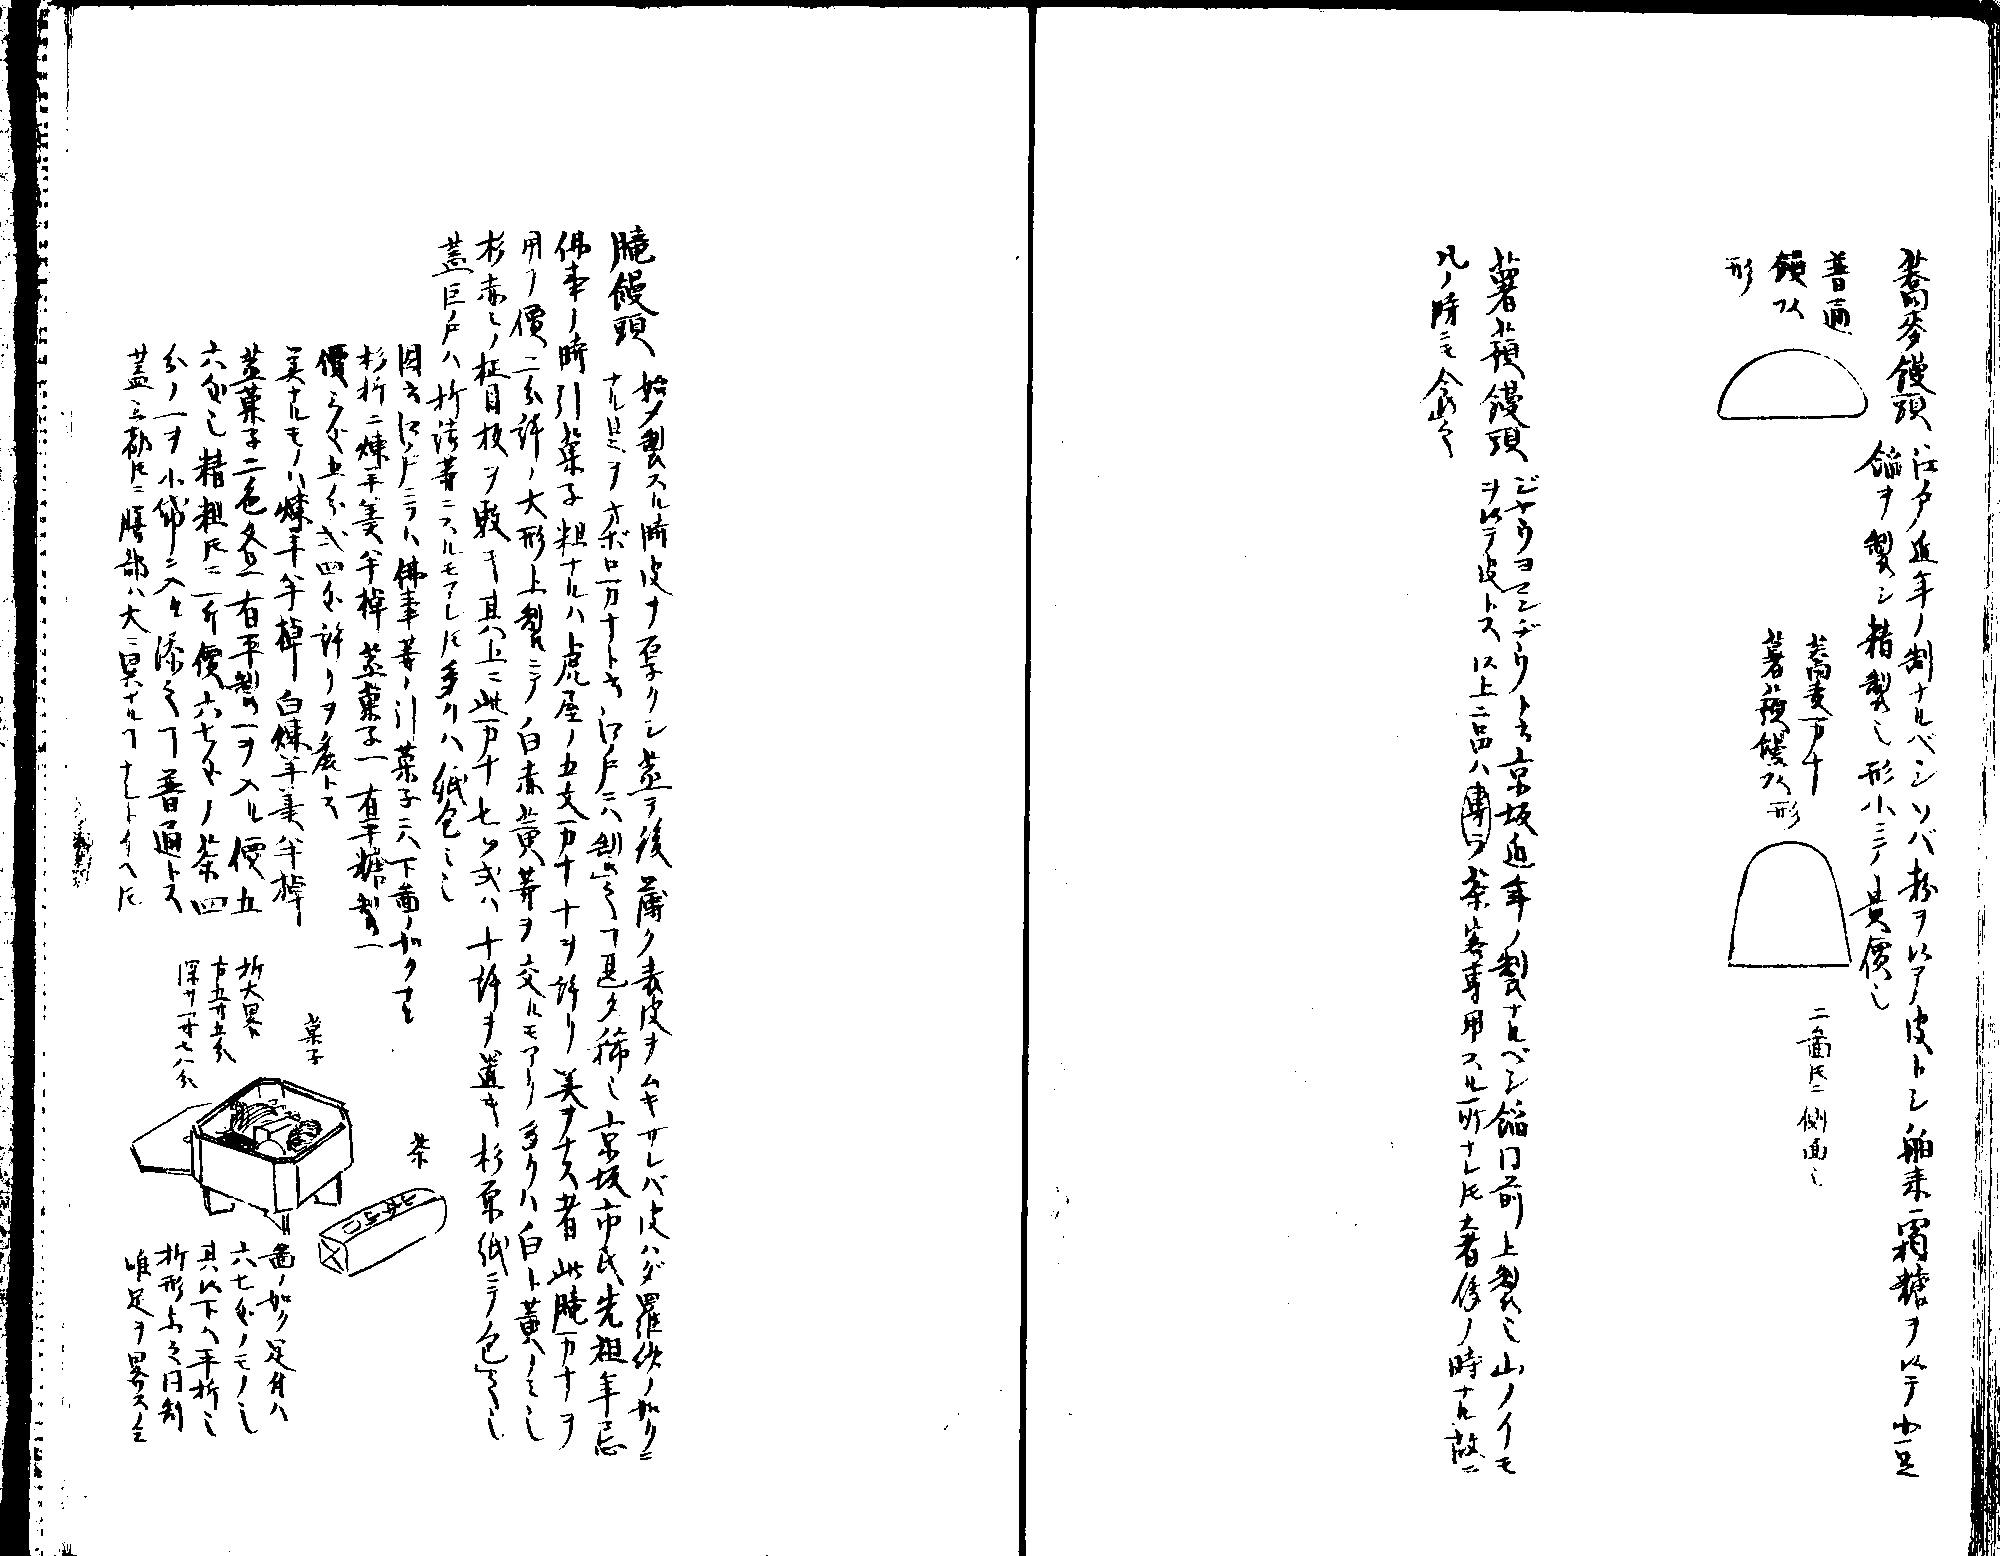 蕎麥饅頭
江戸ノ近年ノ制ナルベシソバ粉ヲ以テ皮トシ舶来霜糖ヲ以テ小豆
餡ヲ製シ精製也形小ニテ貴價也
普通
饅頭
形
蕎麦万十
薯蕷饅頭形
二圖トモニ側面也
薯蕷饅頭
ジヤウヨマンヂウト云京坂近年ノ製ナルベシ餡同前上製也山ノイモ
ヲ以テ皮トス以上二品ハ專ラ茶客專用スル所ナレトモ奢侈ノ時ナル故ニ
凡ノ時ニモ食之
腌饅頭
始メ製スル時皮ヲ厚クシ蒸テ後薄ク表皮ヲムキサレバ皮ハダ羅紗ノ如クニ
ナル是ヲオボロ万十ト云江戸ニハ制之コト甚タ稀也京坂市民先祖年忌
佛事ノ時引菓子粗ナルハ虎屋ノ五文万十十ヲ許リ美ヲナス者此腌万十ヲ
用フ價二分許ノ大形上製ニテ白赤黄等ヲ交ルモアリ多クハ白ト黄ノミ也
杉赤ミノ柾目板ヲ敷キ其上ニ此万十七ツ或ハ十許ヲ置キ杉原紙ニテ包之也
蓋巨戸ハ折詰等ニスルモアレトモ多クハ紙包ミ也
因云江戸ニテハ佛事等ノ引菓子ニハ下圖ノ如クナル
杉折ニ煉羊羹半棹蒸菓子一有平糖製一
價銀五分或四匁許リヲ麁トス
美ナルモノハ煉羊半棹白煉羊羹半棹
蒸菓子二色各一有平製一ヲ入ル價五
六匁也精粗トモニ一斤價六七匁ノ茶四
分ノ一ヲ小袋ニ入レ添之コト普通トス
蓋三都トモニ膳部ハ大ニ異ナルコトナシトイヘトモ
折大畧
方五寸五分
深サ一寸七八分
菓子
茶
圖ノ如ク足付ハ
六七匁ノモノ也
其以下ハ平折也
折形上之同制
唯足ヲ畧スノミ